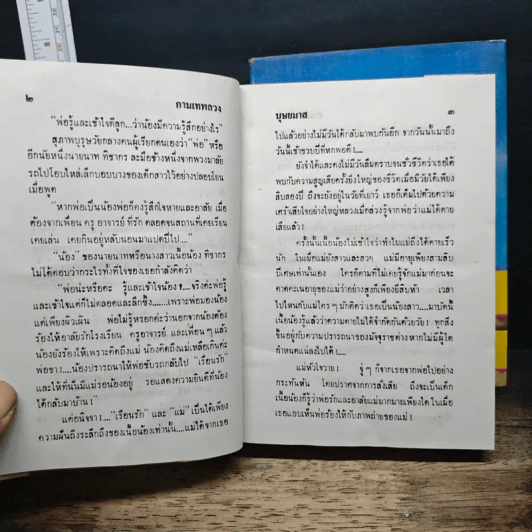 ๒ กามเทพลวง
"พ่อรู้และเข้าใจดีลูก...ว่าน้องมีความรู้สึกอย่างไร"
สุภาพบุรุษวัยกลางคนผู้เรียกตนเองว่า "พ่อ" หรือ
อีกนัยหนึ่งนายนาท ทิชากร ละมือข้างหนึ่งจากพวงมาลัย
รถไปโอบไหล่เล็กบอบบางของเด็กสาวไว้อย่างปลอบโยน
เมื่อพูด
"หากพ่อเป็นน้องพ่อก็คงรู้สึกใจหายและอาลัย เมื่อ
ต้องจากเพื่อน ครู อาจารย์ ที่รัก ตลอดจนสถานที่เคยเรียน
เคยเล่น เคยกินอยู่หลับนอนมาแปดปีไป..."
"น้อง" ของนายนาทหรือนางสาวเนื้อน้อง ทิชากร
ไม่โต้ตอบว่ากระไรทั้งที่ใจของเธอกำลังคิดว่า
"พ่อน่ะหรือคะ รู้และเข้าใจน้อง !....จริงค่ะพ่อรู้
และเข้าใจแต่ก็ไม่ตลอดและลึกซึ้ง.......เพราะพ่อมองน้อง
แต่เพียงผิวเผิน พ่อไม่รู้หรอกค่ะว่านอกจากน้องต้อง
ร้องไห้อาลัยรักโรงเรียน ครูอาจารย์ และเพื่อน ๆ แล้ว
น้องยังร้องไห้เพราะคิดถึงแม่ น้องคิดถึงแม่เหลือเกินค่ะ
พ่อขา !....น้องปรารถนาให้พ่อขับรถกลับไป "เรือนรัก"
และให้ที่นั่นมีแม่รอน้องอยู่ รอแสดงความยินดีที่น้อง
ได้กลับมาบ้าน !"
แต่อนิจจา !...."เรือนรัก" และ "แม่" เป็นได้เพียง
ความฝันถึงระลึกถึงของเนื้อน้องเท่านั้น....แม่ได้จากเธอ
บุษยมาส ๓
ไปแล้วอย่างไม่มีวันได้กลับมาพบกันอีก จากวันนั้นมาถึง
วันนี้เข้าขวบปีที่หกพอดี !....
ยังจำได้และคงไม่มีวันลืมตราบจนชั่วชีวิตว่าเธอได้
พบกับความสูญเสียครั้งยิ่งใหญ่ของชีวิตเมื่อมีวัยได้เพียง
สิบสองปี ถึงจะยังอยู่ในวัยที่เยาว์ เธอก็เต็มไปด้วยความ
เศร้าเสียใจอย่างใหญ่หลวงเมื่อล่วงรู้จากพ่อว่าแม่ได้ตาย
เสียแล้ว !
ครั้งนั้นเนื้อน้องไม่เข้าใจว่าทำไมแม่ถึงได้ตายเร็ว
นัก ในเมื่อแม่ยังสาวและสวย แม่มีอายุเพียงสามสิบ
ปีเศษเท่านั้นเอง ใครก็ตามที่ไม่เคยรู้จักแม่มาก่อนจะ
คาดคะเนอายุของแม่ว่าอย่างสูงก็เพียงยี่สิบห้า เวลา
ไปไหนกับแม่ใคร ๆ มักคิดว่าเธอเป็นน้องสาว....มาบัดนี้
เนื้อน้องรู้แล้วว่าความตายไม่ได้จำกัดกันด้วยวัย ! ทุกสิ่ง
ขึ้นอยู่กับความปรารถนาของมัจจุราชต่างหากไม่มีผู้ใด
กำหนดแน่ลงไปได้ !
แม่หัวใจวาย ! จู่ ๆ ก็จากเธอจากพ่อไปอย่าง
กระทันหัน โดยปราศจากการสั่งเสีย ถึงจะเป็นเด็ก
เนื้อน้องก็รู้ว่าพ่อรักและอาลัยแม่มากมายเพียงใด ในเมื่อ
เธอแอบเห็นพ่อร้องไห้กับภาพถ่ายของแม่ !